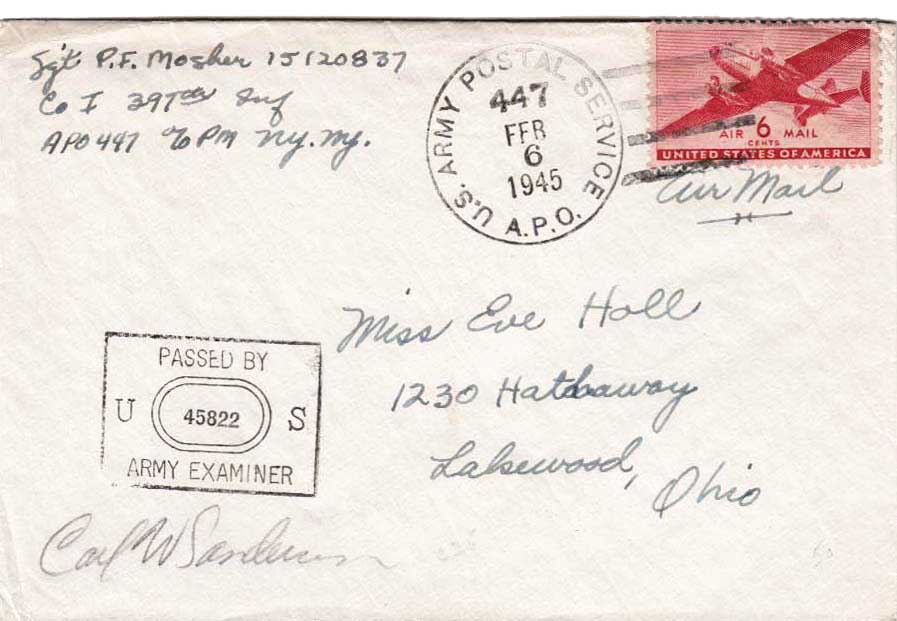 Sgt P.F. Mosher 15120837
Co I 397th Inf
APO 447 % PM N.Y. N.Y.
U.S. ARMY POSTAL SERVICE
447
FEB
6
1945
A.P.O.
AIR 6 MAIL
CENTS
UNITED STATES OF AMERICA
Air Mail
Miss Eve Holl
1230 Hathaway
Lakewood, Ohio
PASSED BY
U 45822 S
ARMY EXAMINER
Carl W Sanderson